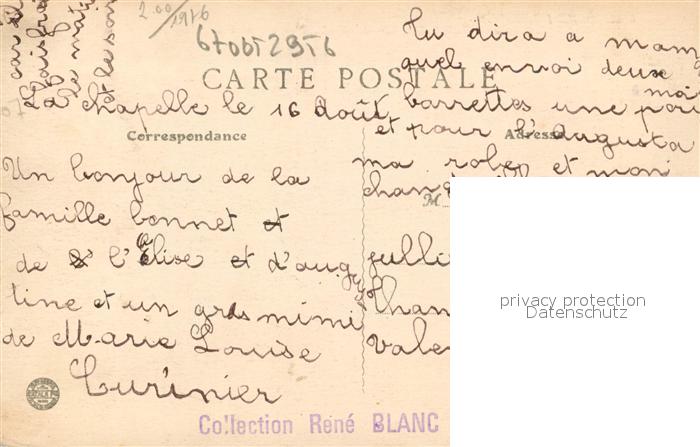 2.00/1916
67obt2956
CARTE POSTALE
La chapelle le 16 Août
Correspondance
Un bonjour de la
famille bonnet et
de l'Elise et d'augus
tine et un gros mimi
de Marie Louise
Turinier
Tu dira a mam
quel envoi deux
barrettes une pour moi
et pour l'augusta
Adresse
ma robe et mon
M
Jullie
Chan
Vale
privacy protection
Datenschutz
Collection René BLANC